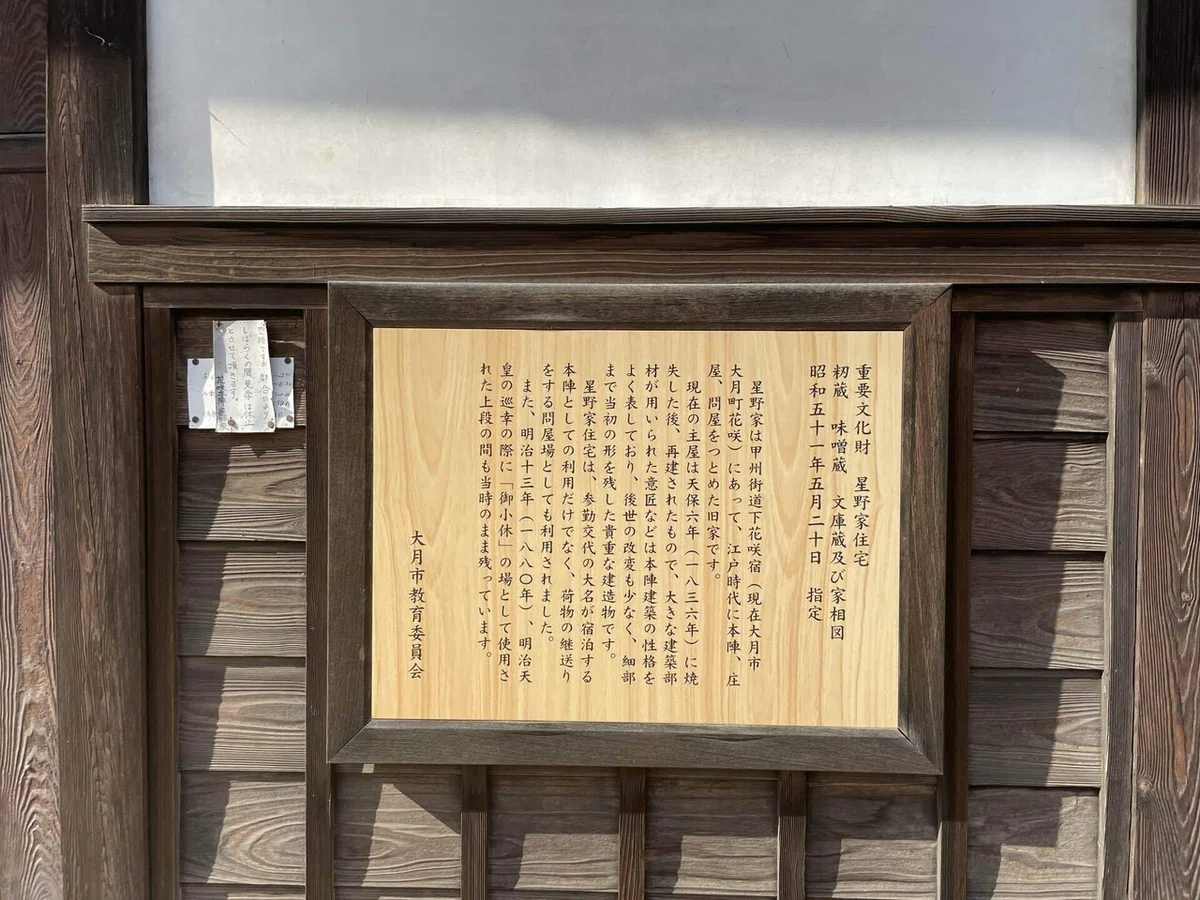 重要文化財　星野家住宅
籾蔵　味噌蔵　文庫蔵及び家相図
昭和五十一年五月二十日　指定
星野家は甲州街道下花咲宿（現在大月市
大月町花咲）にあって、江戸時代に本陣、庄
屋、問屋をつとめた旧家です。
現在の主屋は天保六年（一八三六年）に焼
失した後、再建されたもので、大きな建築部
材が用いられた意匠などは本陣建築の性格を
よく表しており、後世の改変も少なく、細部
まで当初の形を残した貴重な建造物です。
星野家住宅は、参勤交代の大名が宿泊する
本陣としての利用だけでなく、荷物の継送り
をする問屋場としても利用されました。
また、明治十三年（一八八〇年）、明治天
皇の巡幸の際に「御小休」の場として使用さ
れた上段の間も当時のまま残っています。
大月市教育委員会
しばらくの間、見学は休止
とさせて頂きます。